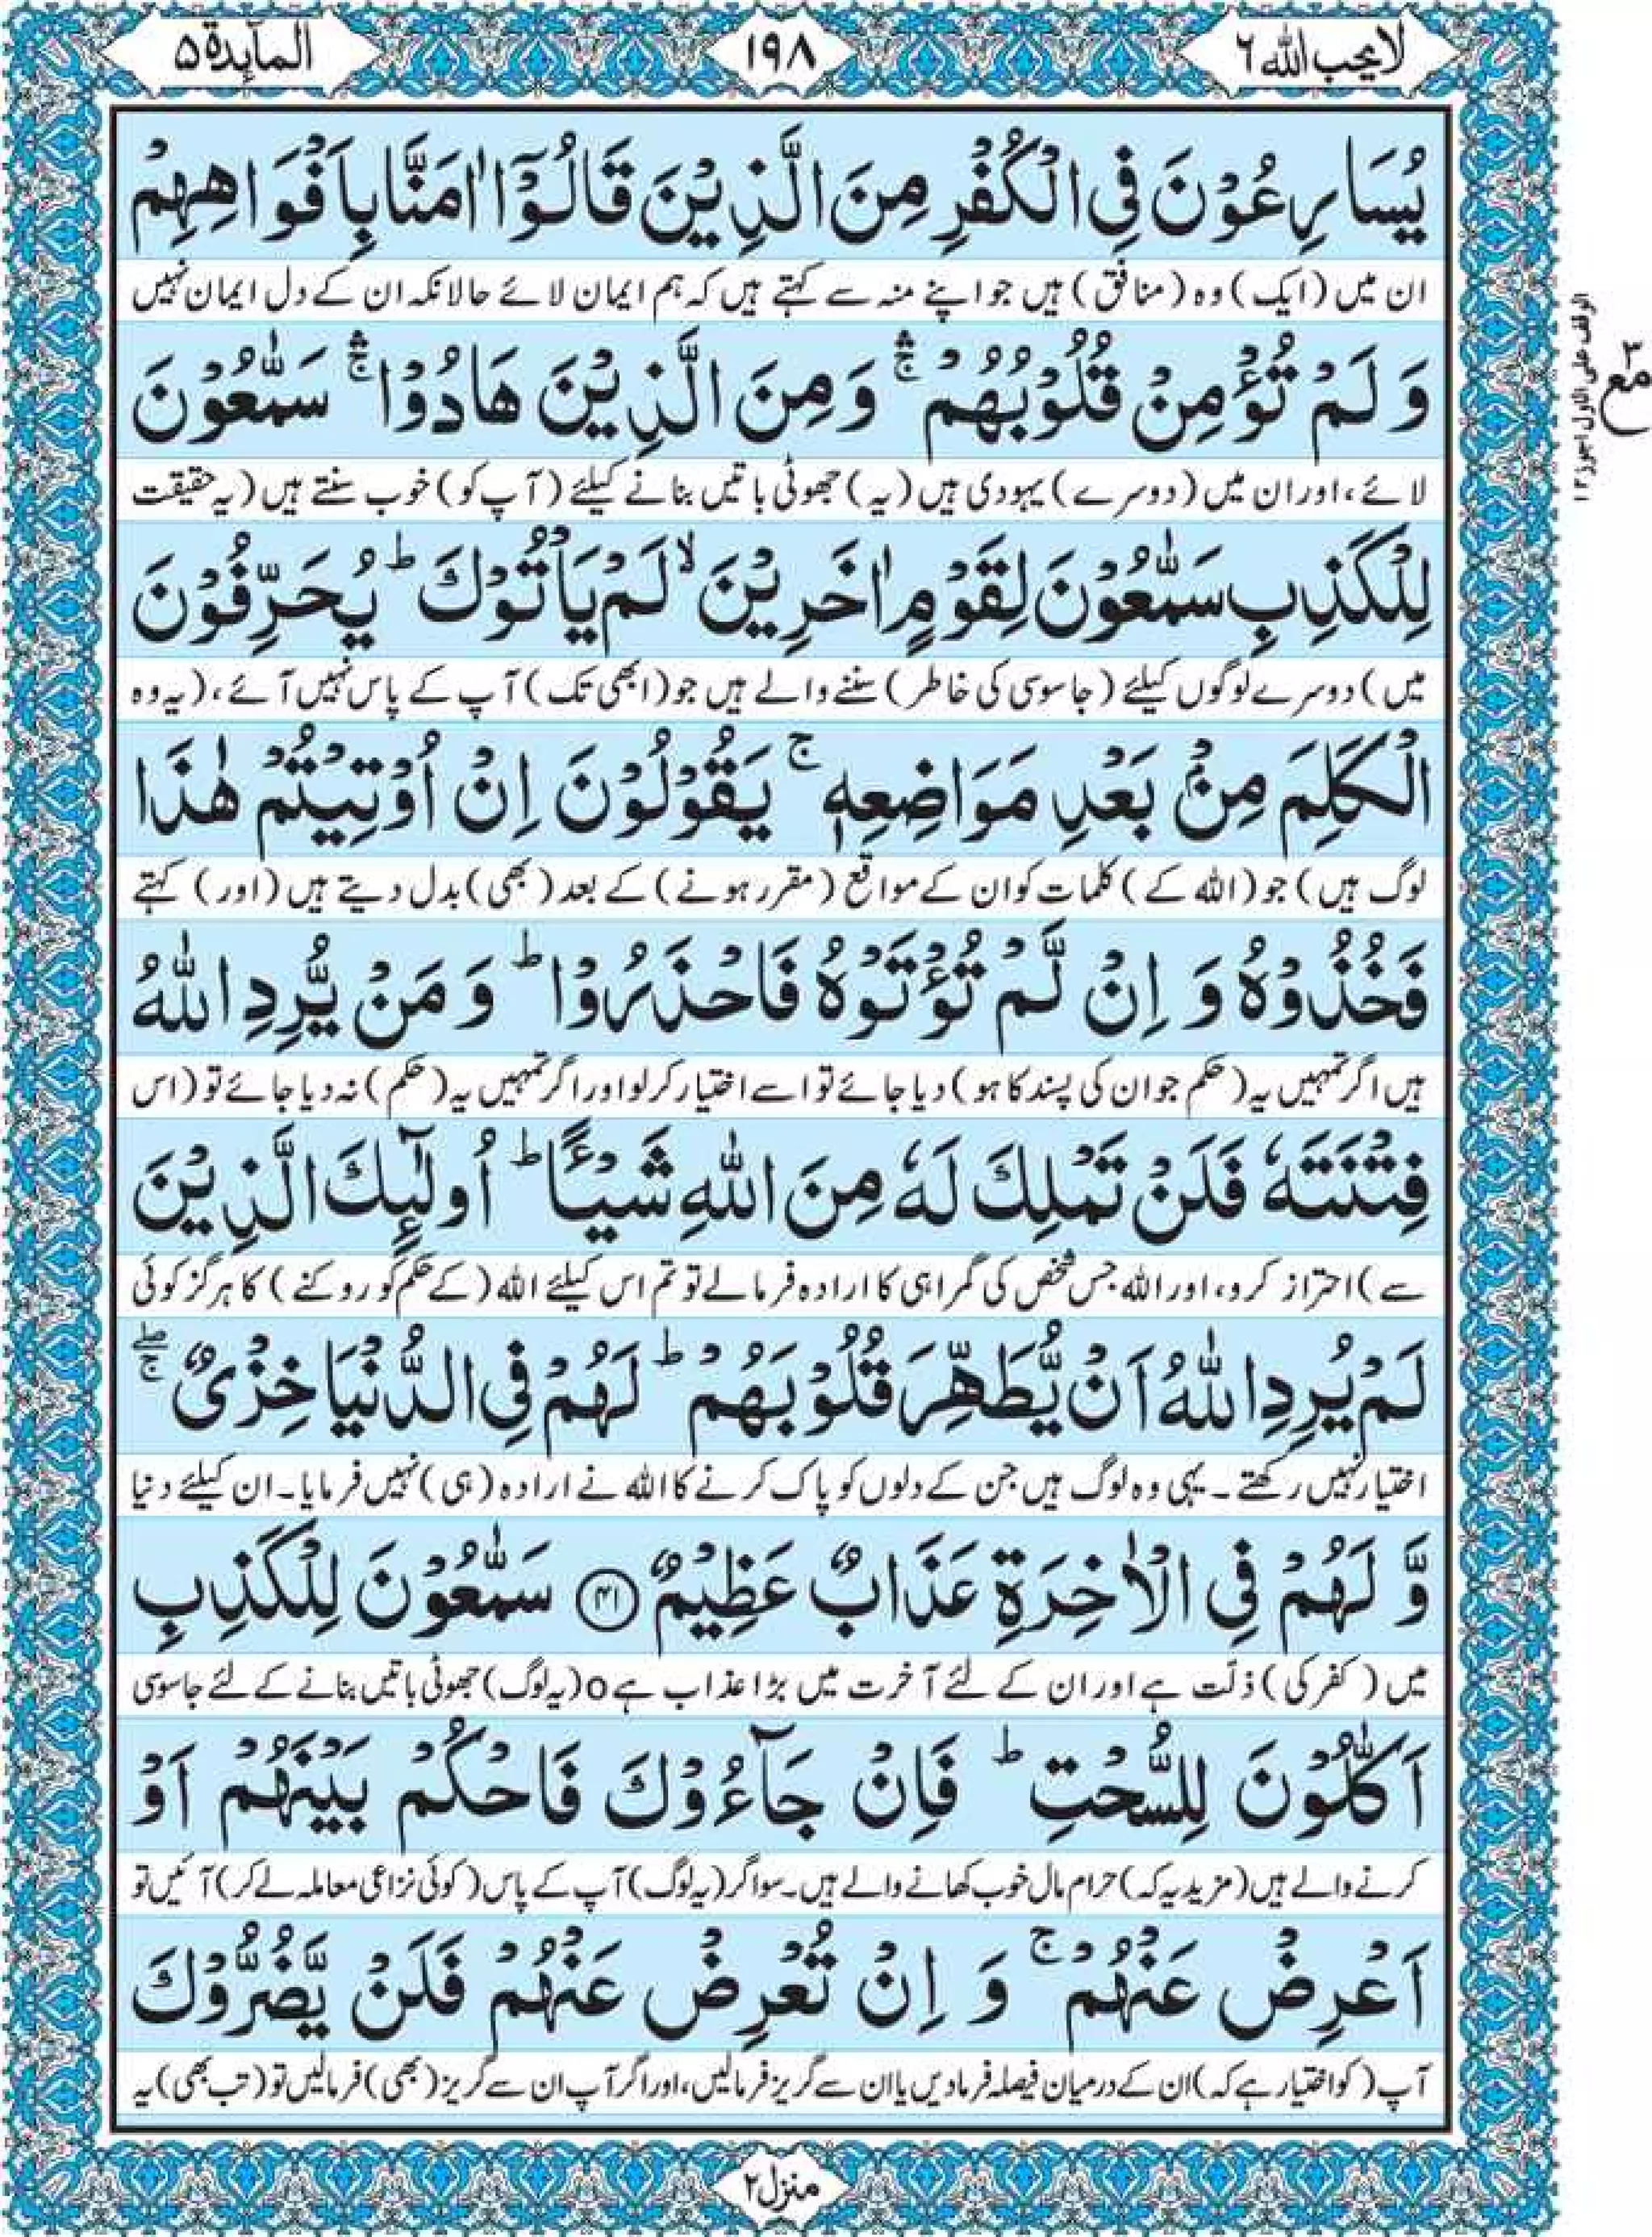 لا يحب الله ٦
١٩٨
المآىِٕدة ۵
يُسَارِعُوْنَ فِي الْكُفْرِ مِنَ الَّذِيْنَ قَالُوْۤا اٰمَنَّا بِاَفْوَاهِهِمْ
ان میں (ایک) وہ (منافق) ہیں جو اپنے منہ سے کہتے ہیں کہ ہم ایمان لائے حالانکہ ان کے دل ایمان نہیں
وَ لَمْ تُؤْمِنْ قُلُوْبُهُمْ ۛۚ وَ مِنَ الَّذِيْنَ هَادُوْا ۛۚ سَمّٰعُوْنَ
لائے، اور ان میں (دوسرے) یہودی ہیں (یہ) جھوٹی باتیں بنانے کیلئے (آپ کو) خوب سنتے ہیں (یہ حقیقت
لِلْكَذِبِ سَمّٰعُوْنَ لِقَوْمٍ اٰخَرِيْنَ ۙ لَمْ يَاْتُوْكَ ؕ يُحَرِّفُوْنَ
میں) دوسرے لوگوں کیلئے (جاسوسی کی خاطر) سننے والے ہیں جو (ابھی تک) آپ کے پاس نہیں آئے، (یہ وہ
الْكَلِمَ مِنْۢ بَعْدِ مَوَاضِعِهٖ ۚ يَقُوْلُوْنَ اِنْ اُوْتِيْتُمْ هٰذَا
لوگ ہیں) جو (اللہ کے) کلمات کو ان کے مواقع (مقرر ہونے) کے بعد (بھی) بدل دیتے ہیں (اور) کہتے
فَخُذُوْهُ وَ اِنْ لَّمْ تُؤْتَوْهُ فَاحْذَرُوْا ؕ وَ مَنْ يُّرِدِ اللّٰهُ
ہیں اگر تمہیں یہ (حکم جو ان کی پسند کا ہو) دیا جائے تو اسے اختیار کرلو اور اگر تمہیں یہ (حکم) نہ دیا جائے تو (اس
فِتْنَتَهٗ فَلَنْ تَمْلِكَ لَهٗ مِنَ اللّٰهِ شَيْـًٔا ؕ اُولٰٓىِٕكَ الَّذِيْنَ
سے) احتراز کرو، اور اللہ جس شخص کی گمراہی کا ارادہ فرمالے تو تم اس کیلئے اللہ (کے حکم کو روکنے) کا ہرگز کوئی
لَمْ يُرِدِ اللّٰهُ اَنْ يُّطَهِّرَ قُلُوْبَهُمْ ؕ لَهُمْ فِي الدُّنْيَا خِزْيٌ ۖۚ
اختیار نہیں رکھتے۔ یہی وہ لوگ ہیں جن کے دلوں کو پاک کرنے کا اللہ نے ارادہ (ہی) نہیں فرمایا۔ ان کیلئے دنیا
وَّ لَهُمْ فِي الْاٰخِرَةِ عَذَابٌ عَظِيْمٌ ۴۱ سَمّٰعُوْنَ لِلْكَذِبِ
میں (کفر کی) ذلّت ہے اور ان کے لئے آخرت میں بڑا عذاب ہے o (یہ لوگ) جھوٹی باتیں بنانے کے لئے جاسوسی
اَكّٰلُوْنَ لِلسُّحْتِ ؕ فَاِنْ جَآءُوْكَ فَاحْكُمْ بَيْنَهُمْ اَوْ
کرنے والے ہیں (مزید یہ کہ) حرام مال خوب کھانے والے ہیں۔ سو اگر (یہ لوگ) آپ کے پاس (کوئی نزاعی معاملہ لے کر) آئیں تو
اَعْرِضْ عَنْهُمْ ۚ وَ اِنْ تُعْرِضْ عَنْهُمْ فَلَنْ يَّضُرُّوْكَ
آپ (کو اختیار ہے کہ) ان کے درمیان فیصلہ فرمادیں یا ان سے گریز فرمالیں، اور اگر آپ ان سے گریز (بھی) فرمالیں تو (تب بھی) یہ
منزل ۲
مع ٣
الوقف علی الاول اجوز ١٢